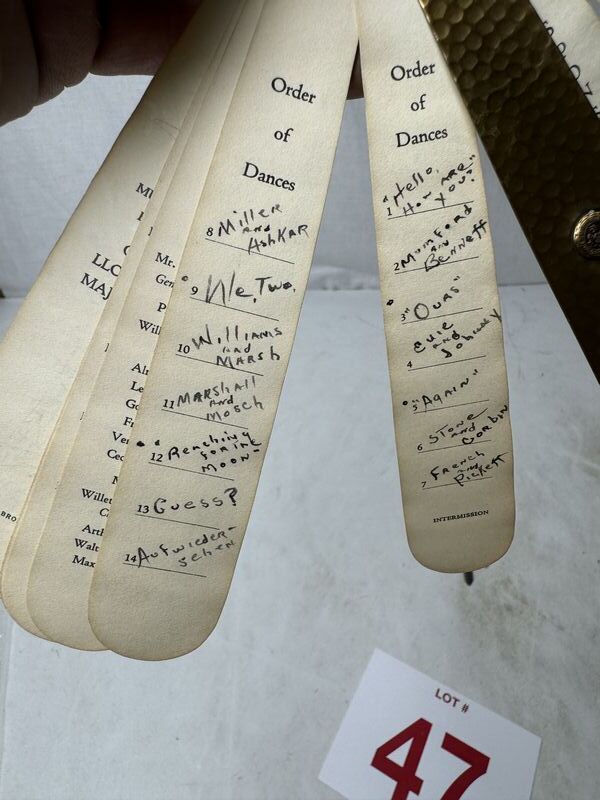 Order
of
Dances
8 Miller
and
Ashkar
9 We, Two,
10 Williams
and
Marsh
11 Marshall
and
Mosch
12 "Reaching
for the
Moon"
13 Guess?
14 Aufwieder-
sehen
Order
of
Dances
1 "Hello,
How Are
You?"
2 Mumford
and
Bennett
3 "Ours"
4 Evie
and
5 "Again"
6 Stone
and
Corbin
7 French
and
Pickett
INTERMISSION
LLO
MAJ
Mr.
Gen
Will
Willet
Arth
Walt
Max
BRO
LOT #
47